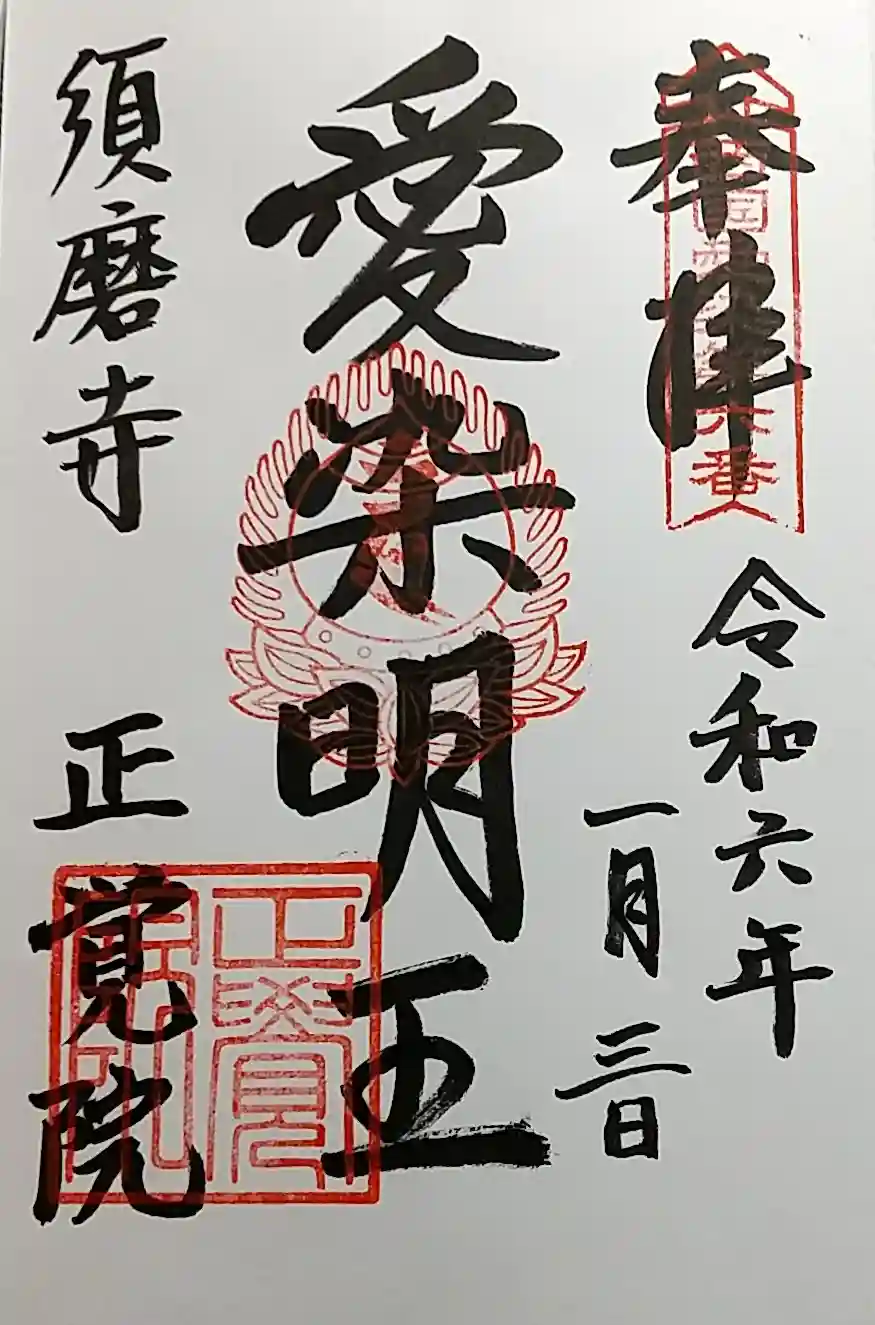 奉拝
六番
令和六年
一月三日
愛染明王
須磨寺 正覚院
正覺
院印